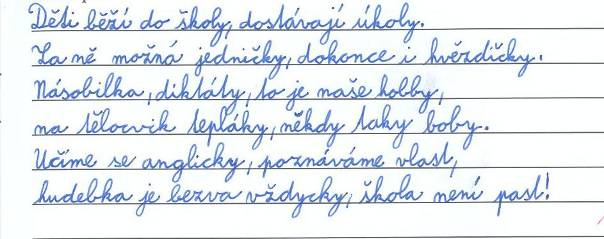 Děti běží do školy, dostávají úkoly.
Za ně možná jedničky, dokonce i hvězdičky.
Násobilka, diktáty, to je naše hobby,
na tělocvik tepláky, někdy taky boby.
Učíme se anglicky, poznáváme vlast,
hudebka je bezva vždycky, škola není past!